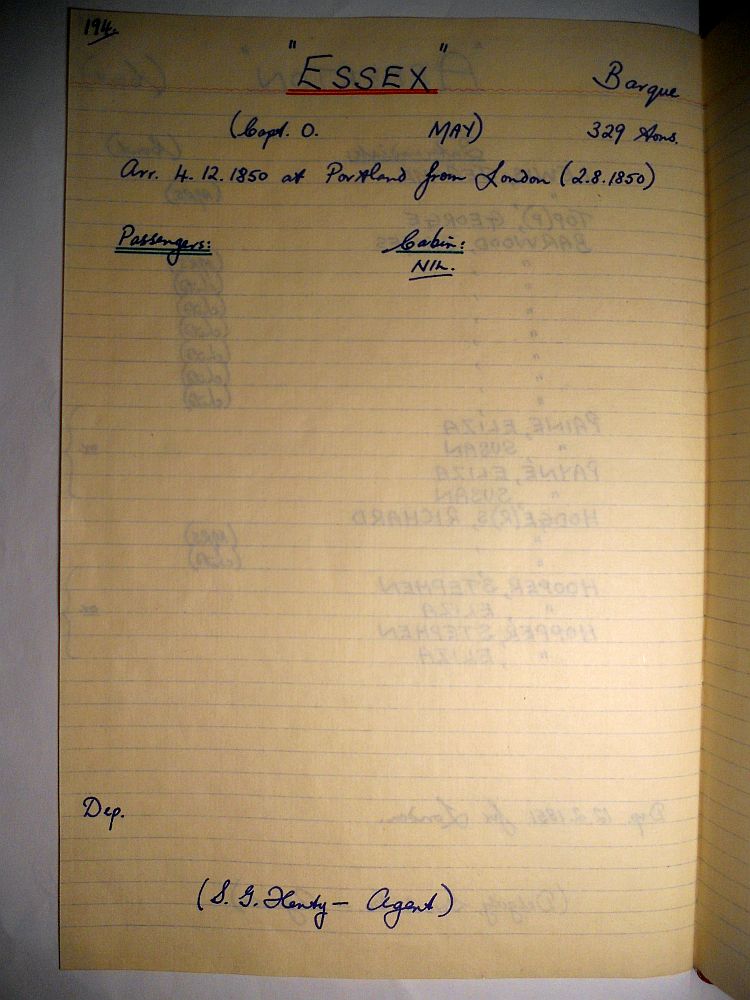 194.
"ESSEX" Barque
(Capt. O. MAY) 329 tons.
Arr. 4.12.1850 at Portland from London (2.8.1850)
Passengers: Cabin:
NIL.
Dep.
(S. G. Henty – Agent)